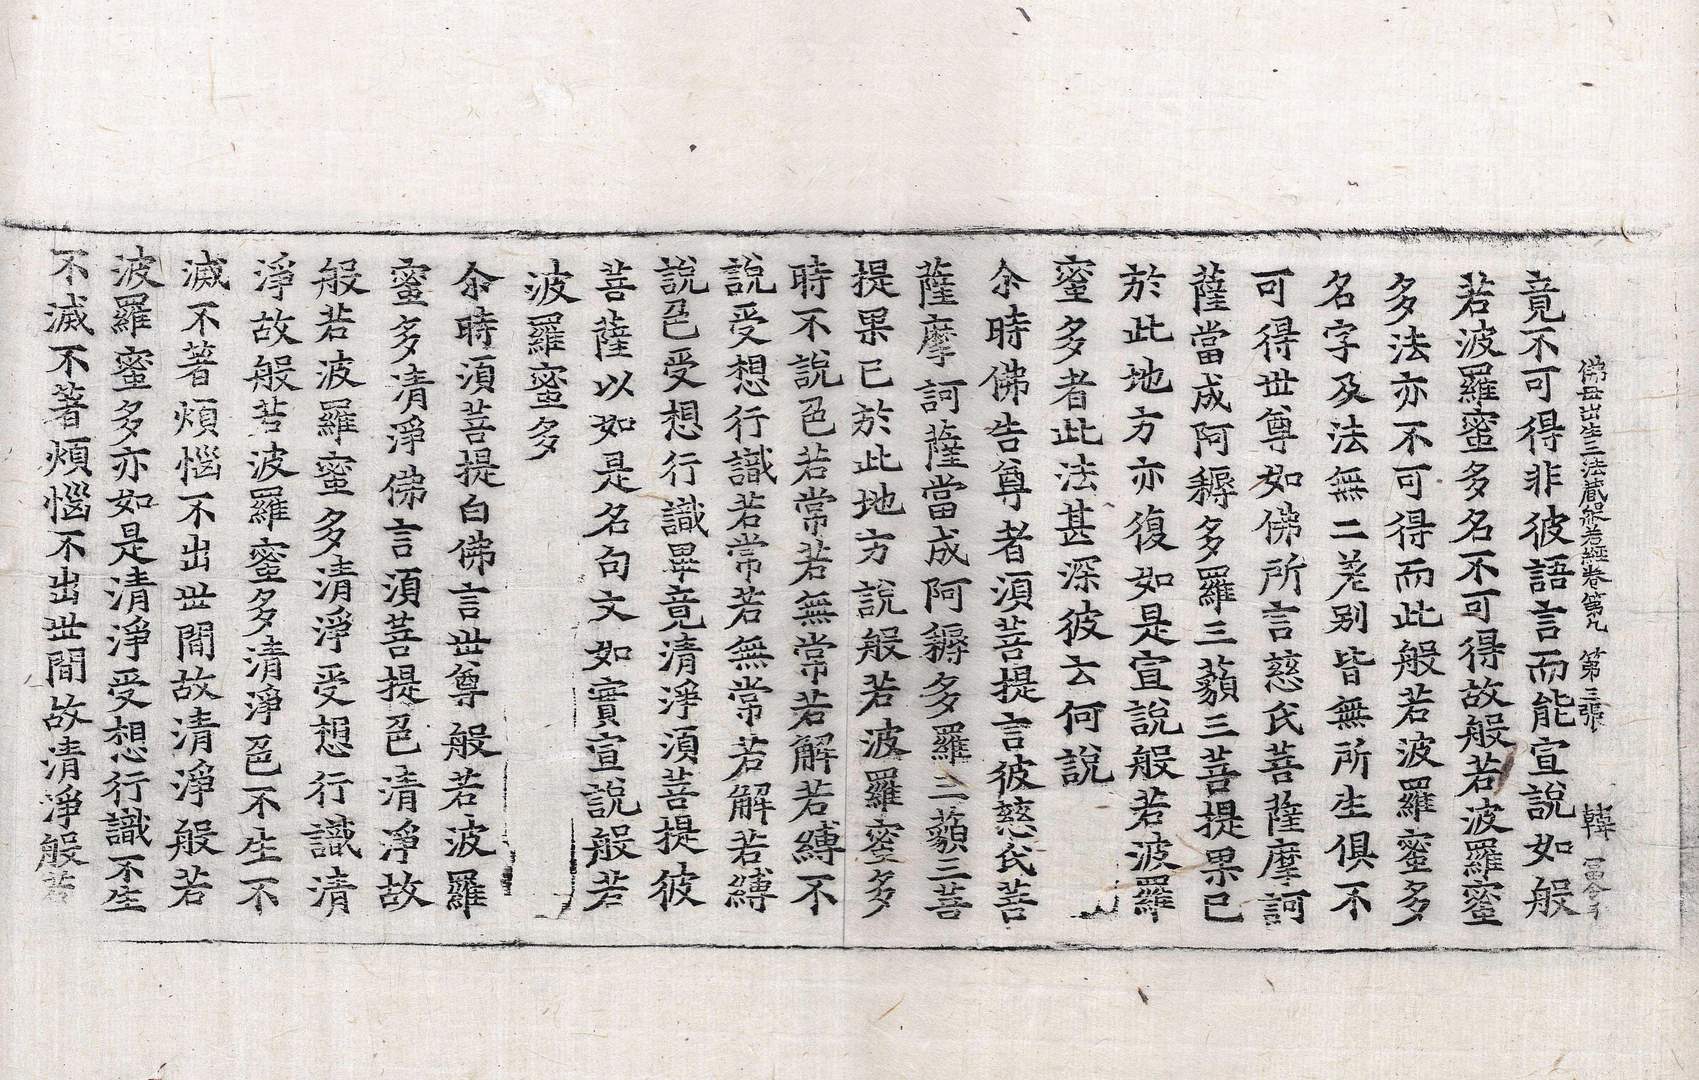 佛母出生三法藏般若經卷第九　第三張　韓
竟不可得非彼語言而能宣說如般
若波羅蜜多名不可得故般若波羅蜜
多法亦不可得而此般若波羅蜜多
名字及法無二差别皆無所生俱不
可得世尊如佛所言慈氏菩薩摩訶
薩當成阿耨多羅三藐三菩提果已
於此地方亦復如是宣說般若波羅
蜜多者此法甚深彼云何說
尒時佛告尊者須菩提言彼慈氏菩
薩摩訶薩當成阿耨多羅三藐三菩
提果已於此地方說般若波羅蜜多
時不說色若常若無常若解若縛不
說受想行識若常若無常若解若縛
說色受想行識畢竟清淨須菩提彼
菩薩以如是名句文如實宣說般若
波羅蜜多
尒時須菩提白佛言世尊般若波羅
蜜多清淨佛言須菩提色清淨故
般若波羅蜜多清淨受想行識清
淨故般若波羅蜜多清淨色不生不
滅不著煩惱不出世間故清淨般若
波羅蜜多亦如是清淨受想行識不生
不滅不著煩惱不出世間故清淨般若